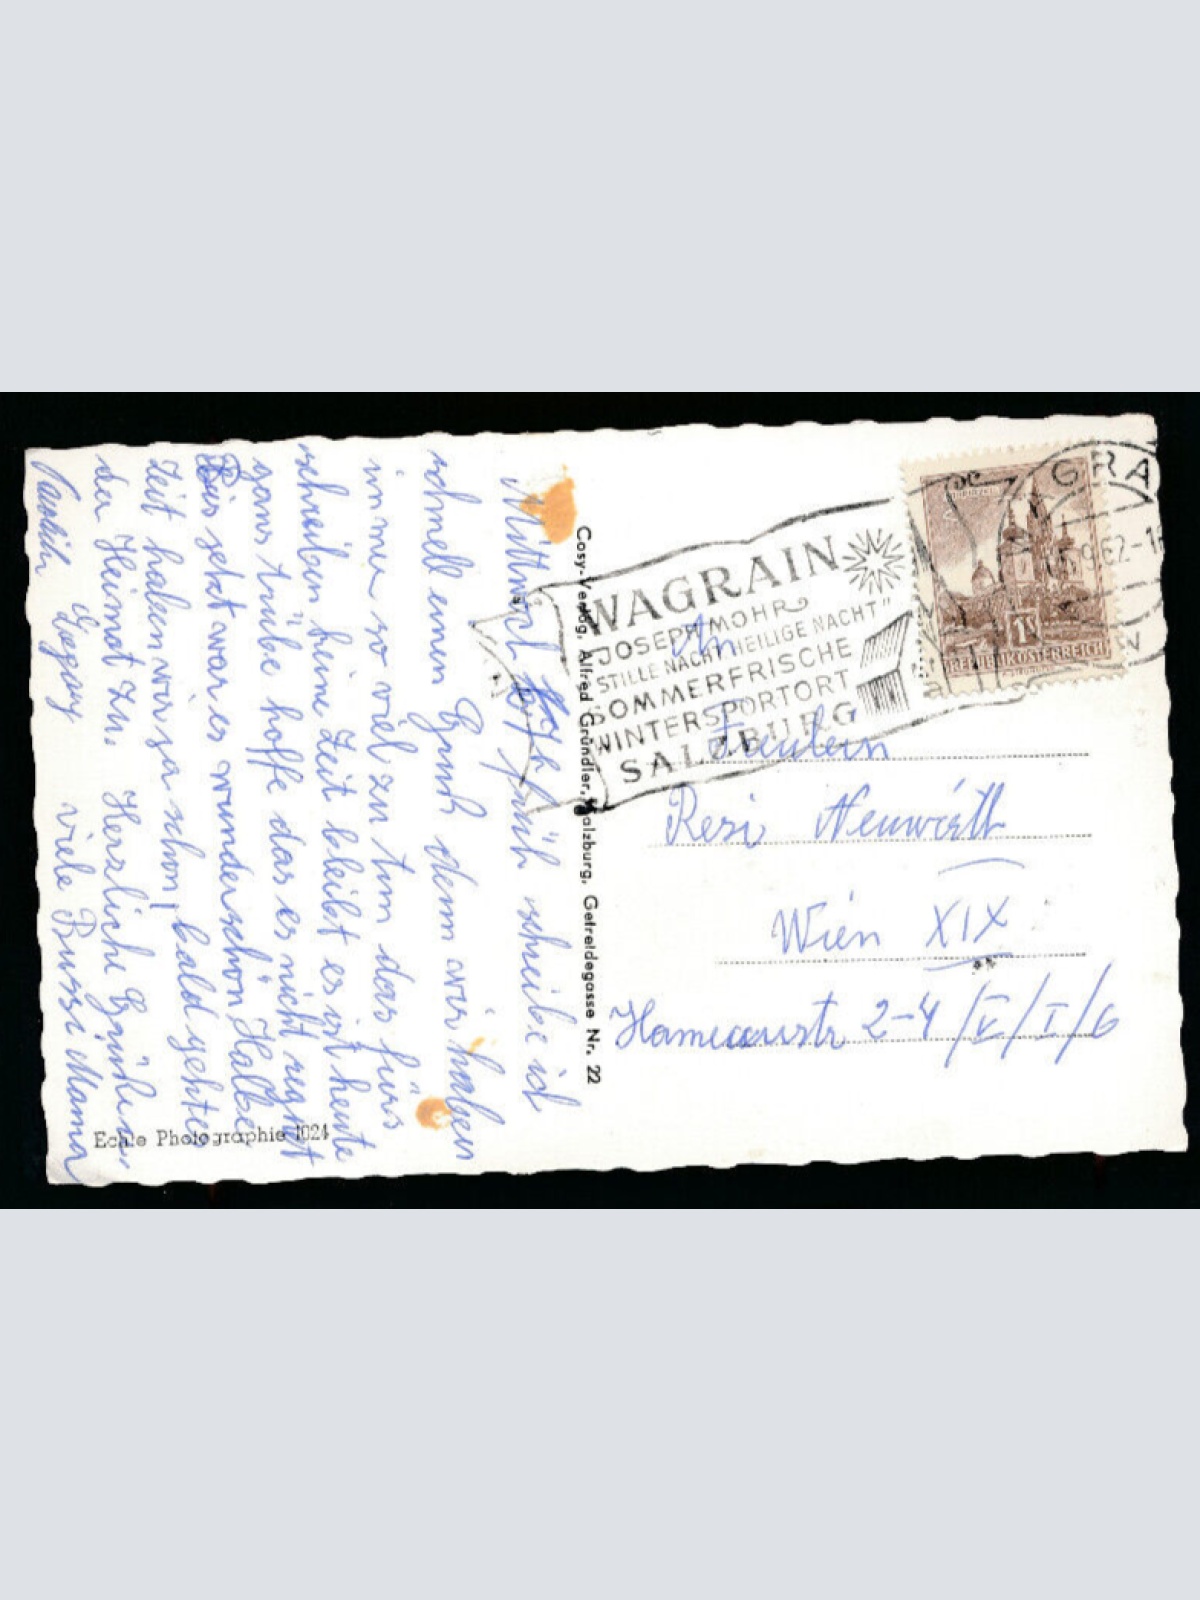 Mittwoch früh schreibe ich
schnell einen Gruß denn wir haben
immer so viel zu tun das fürs
schreiben keine Zeit bleibt es ist heute
ganz trübe hoffe das es nicht regnet
Bis jetzt war es wunderschön Halbe
Zeit haben wir ja schon bald gehts
der Heimat zu. Herzliche Grüße
viele Bussi Mama
Echte Photographie 1024
Cosy-Verlag, Alfred Gründler, Salzburg, Getreidegasse Nr. 22
WAGRAIN
JOSEPH MOHR
"STILLE NACHT HEILIGE NACHT"
SOMMERFRISCHE
WINTERSPORTORT
SALZBURG
GRA
9.62-1
1S
REPUBLIK ÖSTERREICH
An
Fräulein
Resi Neuwirth
Wien XIX
2-4/V/I/6